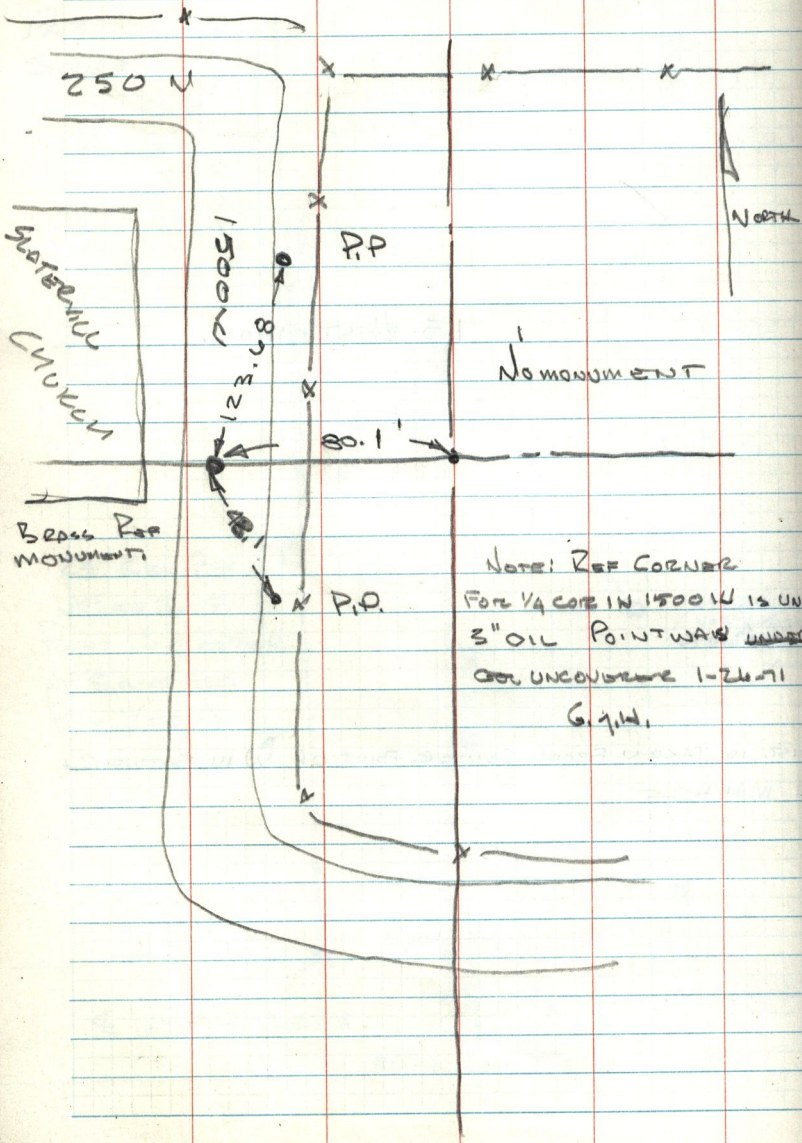 250 N
NORTH
SLATERVILL
CHURCH
1500W
P.P
123.68
No monument
80.1'
48.1
BRASS REF
MONUMENT
P.P.
NOTE: REF CORNER
FOR 1/4 COR IN 1500 W IS UN
3" OIL POINT WAS
UNCOVERED 1-26-71